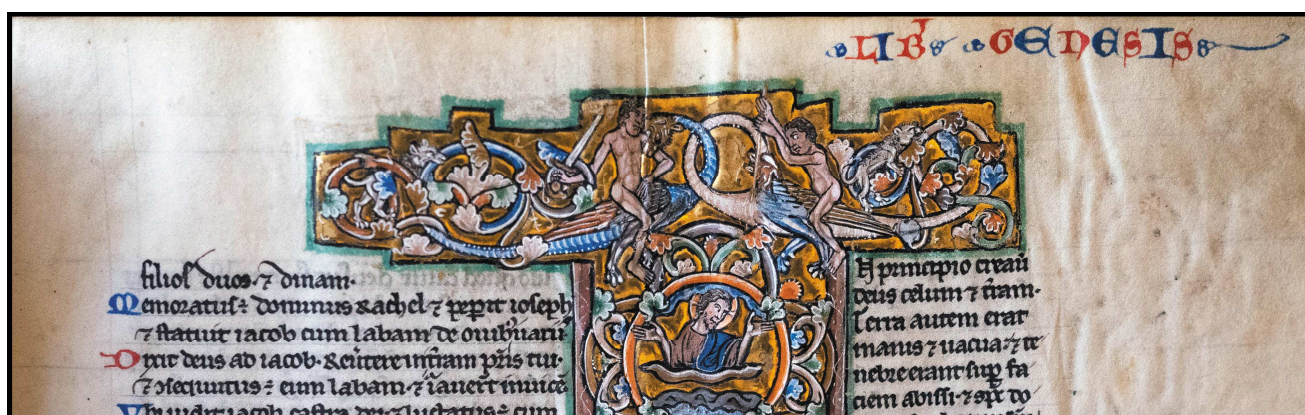 LIB' GENESIS
filios duos ⁊ dinam.
Memoratus ÷ dominus rachel ⁊ peperit ioseph
⁊ statuit iacob cum labam de ouibꝰ uariis
Dixit deus ad iacob. Reuertere in terram pr̄is tui.
⁊ ꝯsequutus ÷ eum labam. ⁊ iauert inuicē
iacob castra dei. ⁊ luctatus ÷ cum
N principio creauit
deus celum ⁊ t̄ram.
Terra autem erat
inanis ⁊ uacua. ⁊ te
nebre erant sup fa
ciem abissi. ⁊ sp̄c do